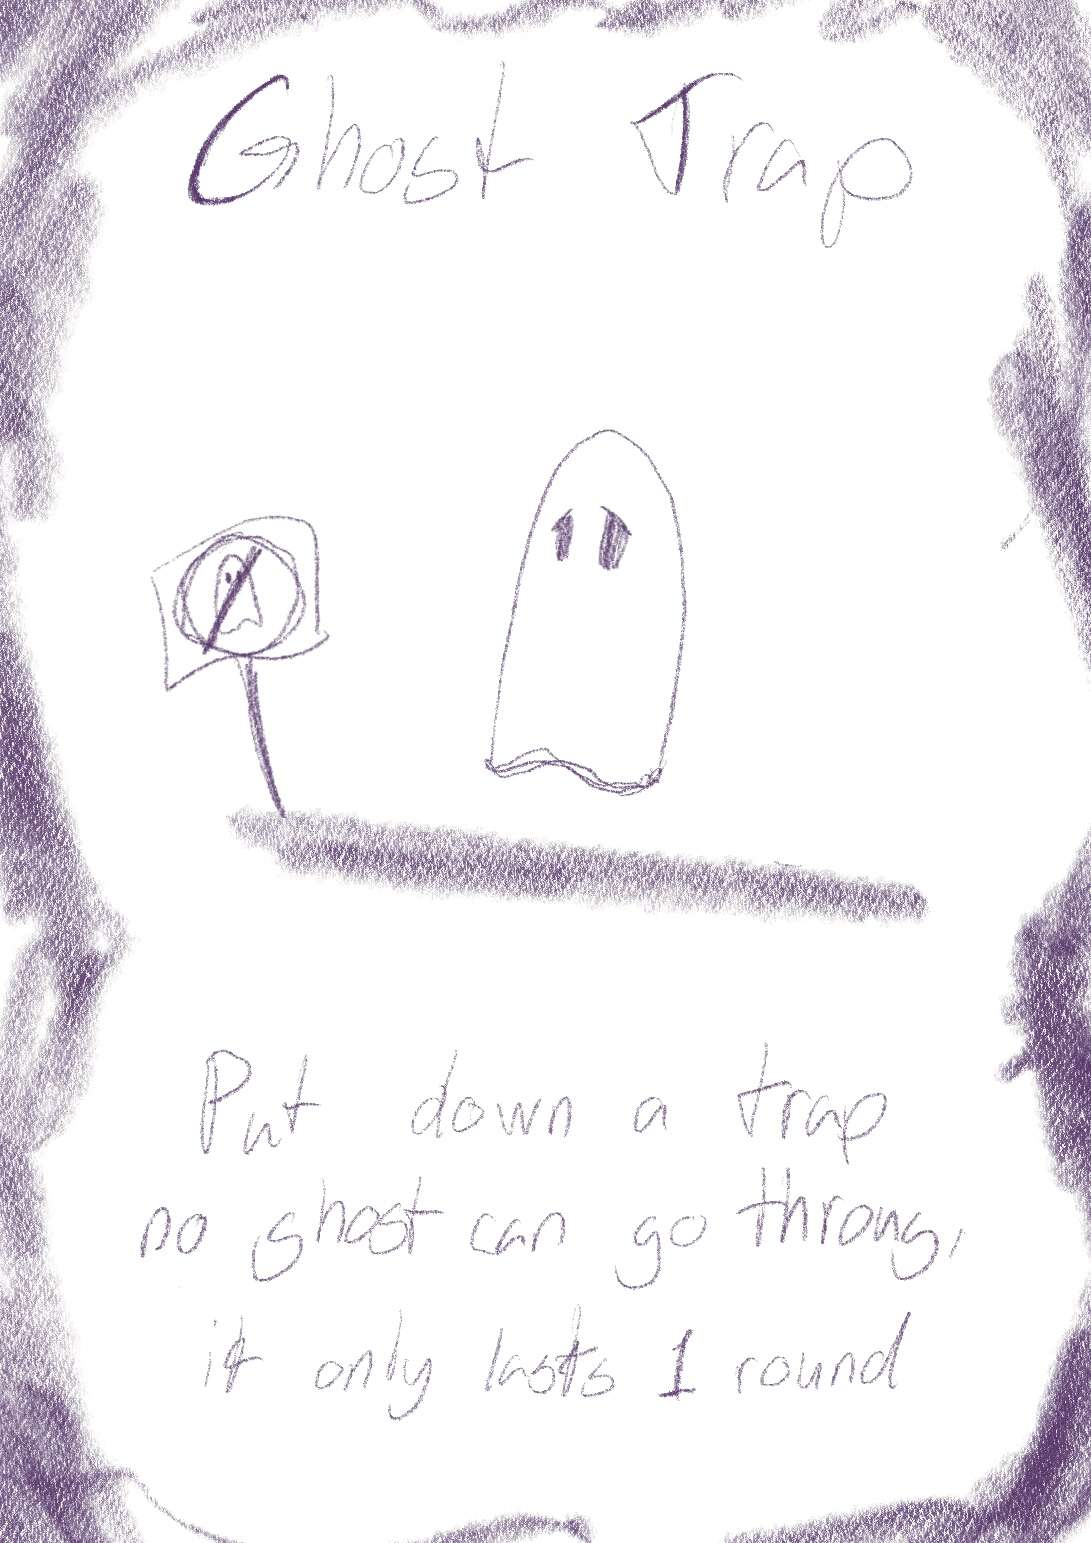 Ghost Trap
Put down a trap
no ghost can go throug,
it only lasts 1 round